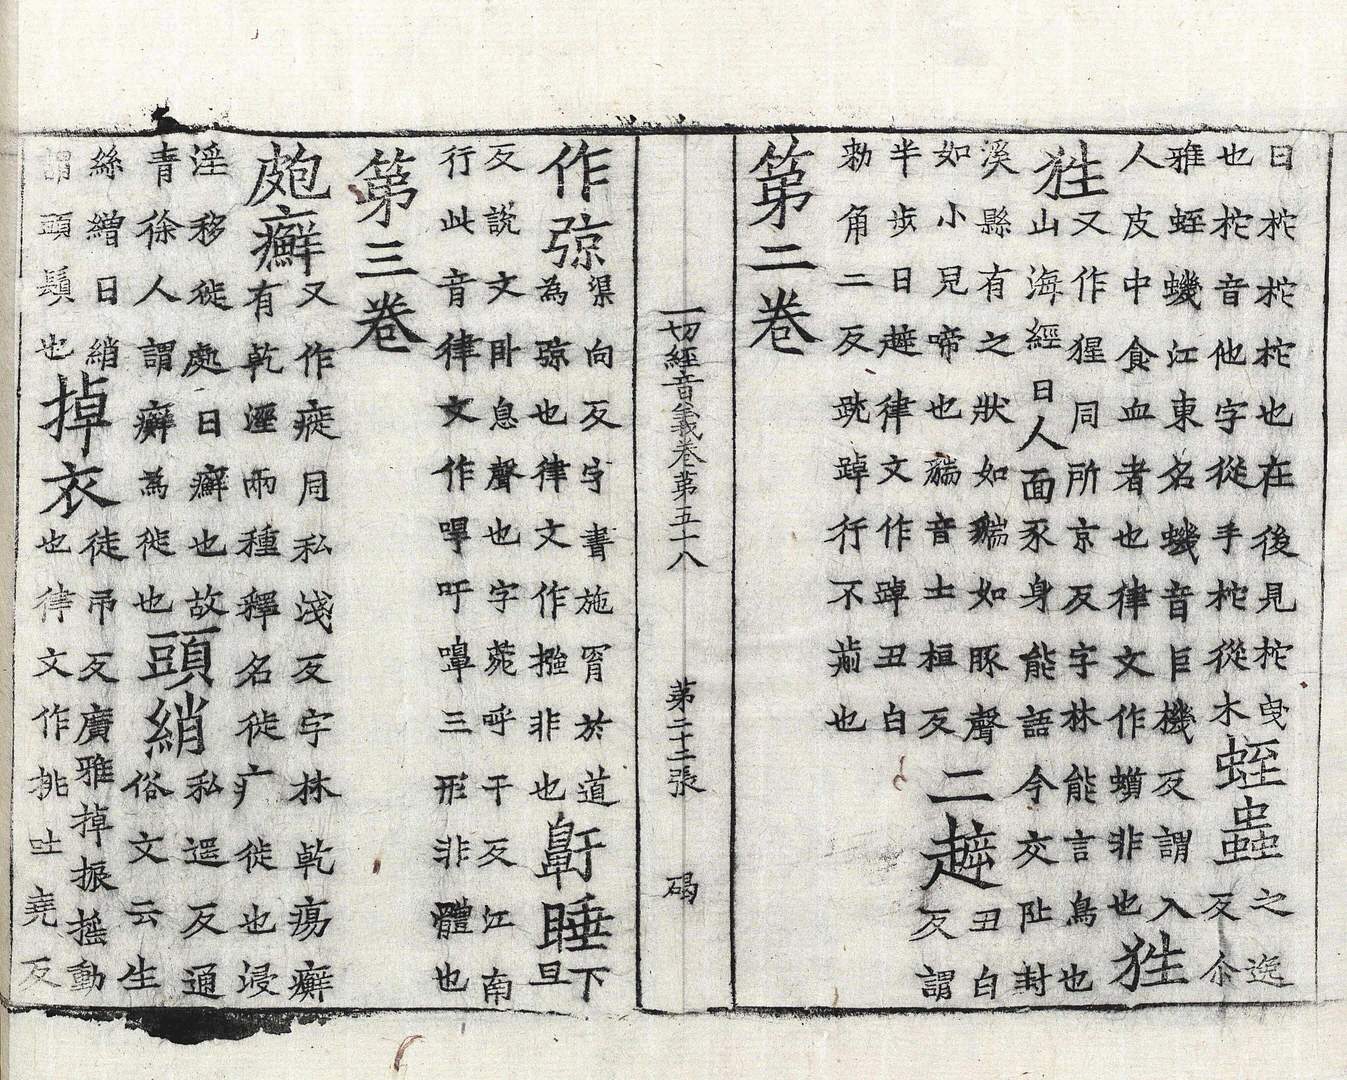 曰柁柁柁也在後見柁曳
也柁音他字從手柁從木
蛭蟲
之逸
反尒
雅蛭蟣江東名蟣音巨機反謂入
人皮中食血者也律文作蟥非也
狌
狌
又作猩同所京反字林能言鳥也
山海經曰人面豕身能語今交阯封
溪縣有之狀如貒如豚聲
如小兒啼也貒音士桓反
二趚
丑白
反謂
半步曰趚律文作踔丑白
勑角二反踔行不前也
第二卷
一切經音義卷第五十八 第二十二張 碣
作弶
渠向反字書施罥於道
為弶也律文作摾非也
鼾睡
下
旦
反說文卧息聲也字苑呼干反江南
行此音律文作嘷吁嚊三形非體也
第三卷
皰癬
又作㾌同私淺反字林乾瘍癬
有乾溼兩種釋名徙疒徙也浸
淫移徙處曰癬也故
青徐人謂癬為徙也
頭綃
私遥反通
俗文云生
絲繒曰綃
謂頭鬚也
掉衣
徒吊反廣雅掉振搖動
也律文作挑吐堯反